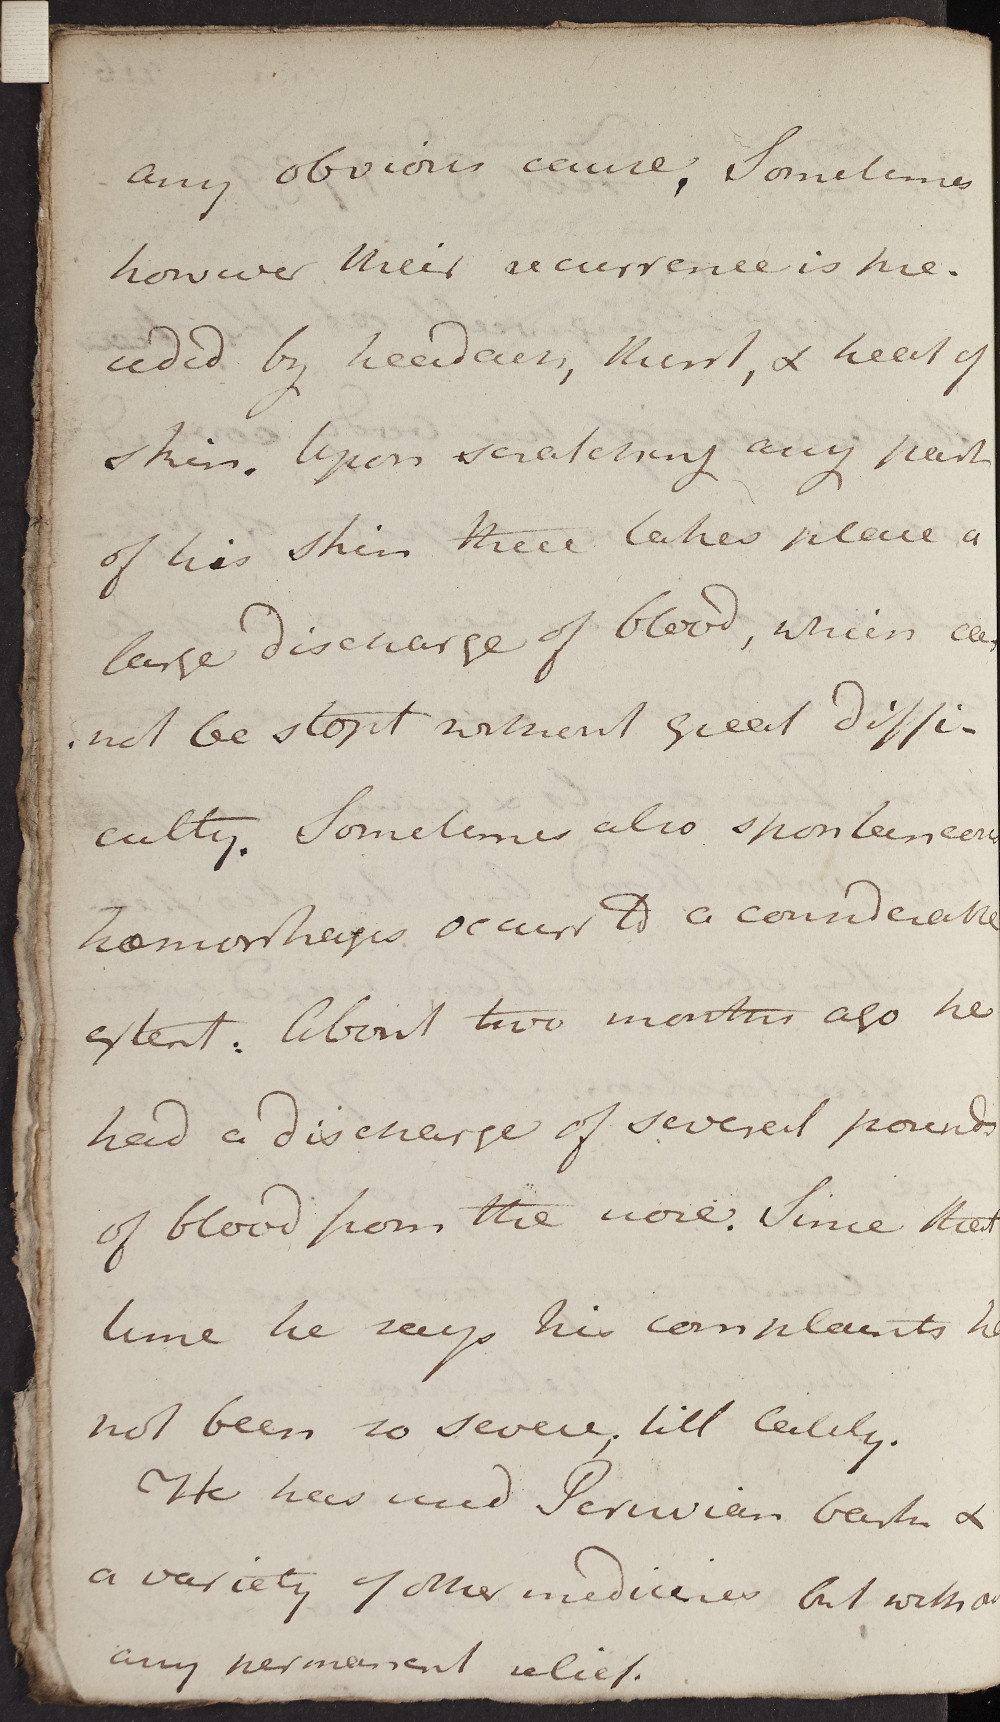 any obvious cause, Sometimes
however their recurrence is pre-
ceded by headach, thirst, & heat of
skin. Upon scratching any part
of his skin there takes place a
large discharge of blood, which can
not be stopt without great diffi-
culty. Sometimes also spontaneous
hæmorrhages occurr to a considerable
extent. About two months ago he
had a discharge of several pounds
of blood from the nose. Since that
time he says his complaints ha
not been so severe, till lately.
He has used Peruvian bark &
a variety of other medicines but withou
any permanent relief.